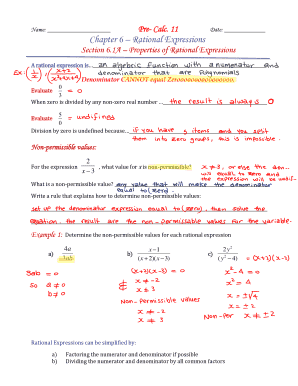 Name: Pre- Calc. 11 Date:
Chapter 6 – Rational Expressions
Section 6.1A – Properties of Rational Expressions
A rational expression is an algebraic function with a numerator and
Ex: (1/x), (x+2/x²+4x+4) denominator that are Polynomials
Denominator CANNOT equal Zero
Evaluate 0/8 = 0
When zero is divided by any non-zero real number .. the result is always 0
Evaluate 5/0 = undefined
Division by zero is undefined because… if you have 5 items and you split
them into zero groups, this is impossible.
Non-permissible values:
For the expression 2/x−3 , what value for x is non-permissible? x ≠ 3, or else the den..
will equal to zero and
the expression will be undef..
What is a non-permissible value? any value that will make the denominator
equal to (zero).
Write a rule that explains how to determine non-permissible values:
set up the denominator expression equal to (zero), then solve the
equation, the result are the non-permissable values for the variable.
Example 1: Determine the non-permissible values for each rational expression
a) 4a/3ab b) x−1/(x+2)(x−3) c) 2y²/(y²−4) = (x+2)(x-2)
3ab = 0 (x+2)(x-3) = 0 x²-4 = 0
so a ≠ 0 x ≠ -2 x² = 4
b ≠ 0 x ≠ 3 x = ±√4
Non-permissible values x = ±2
x ≠ -2 Non-per x ≠ ±2
x ≠ 3
Rational Expressions can be simplified by:
a) Factoring the numerator and denominator if possible
b) Dividing the numerator and denominator by all common factors